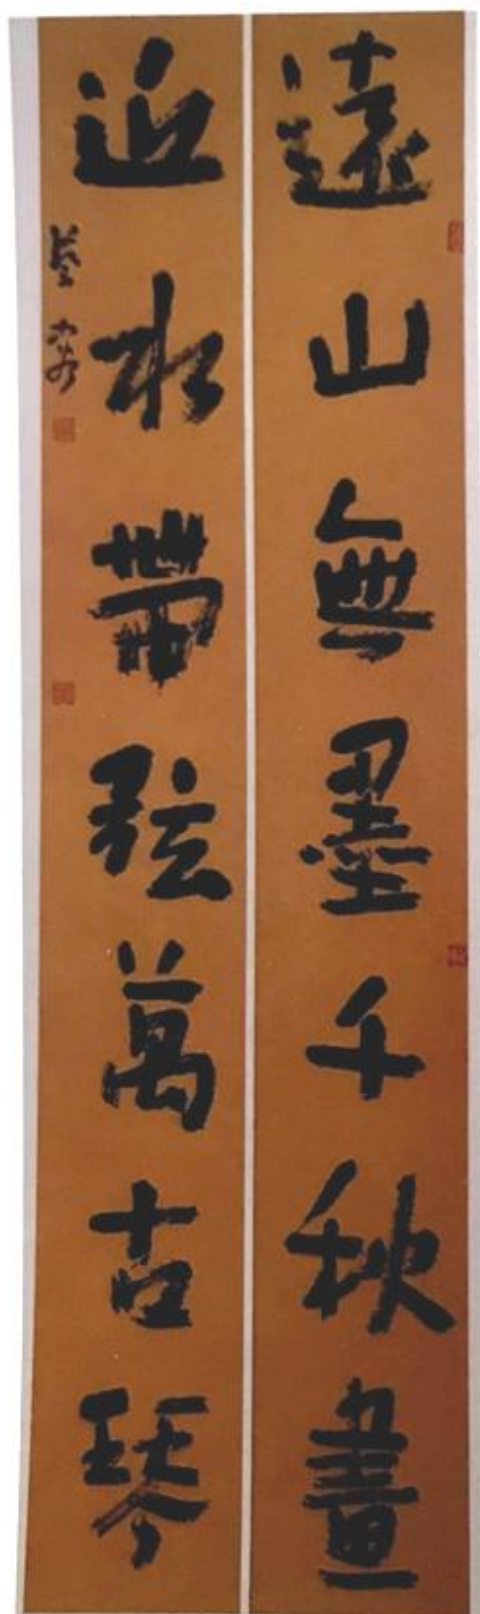 遠山無墨千秋畫
近水帶弦萬古琴